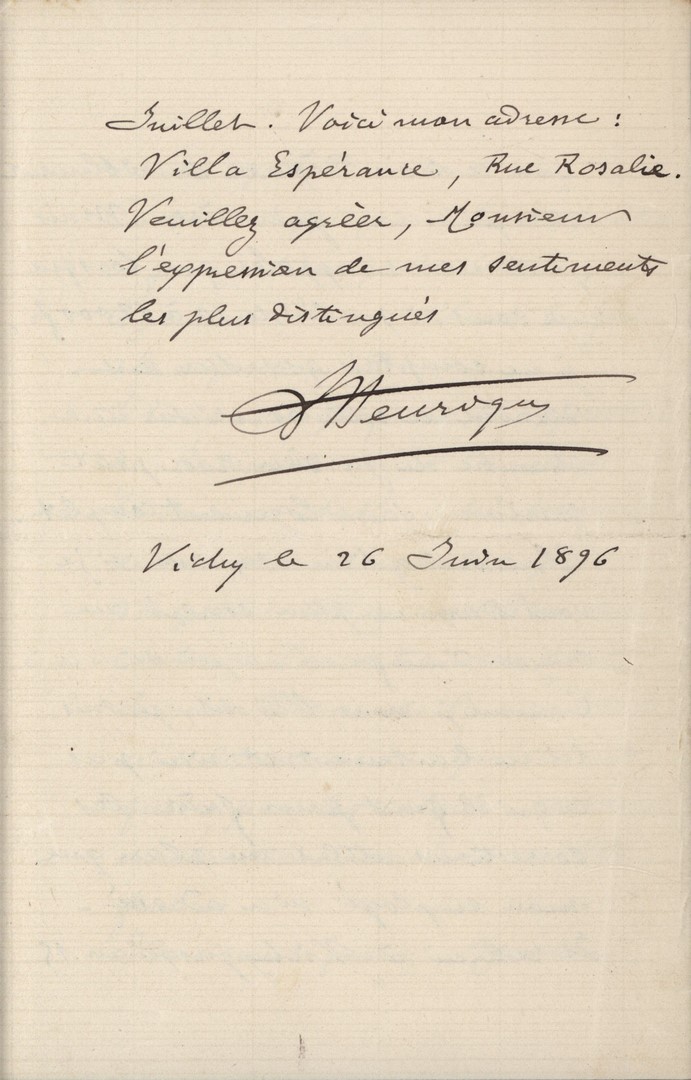 Juillet. Voici mon adresse :
Villa Espérance, Rue Rosalie.
Veuillez agréer, Monsieur
l'expression de mes sentiments
les plus distingués
Vichy le 26 Juin 1896